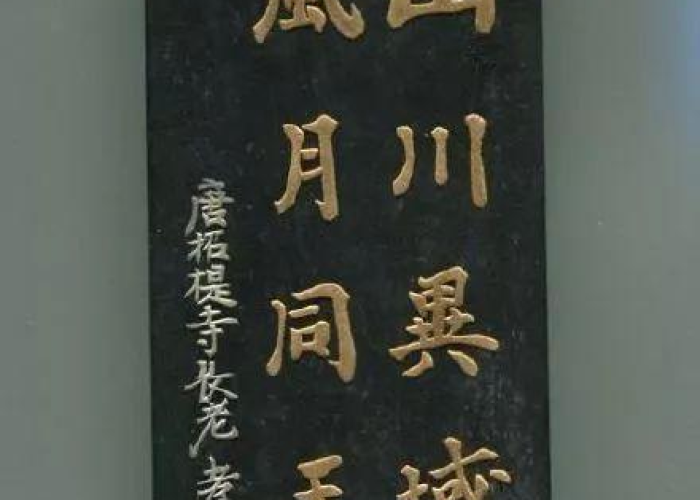 山川異域
風月同天
唐拓提寺長老孝